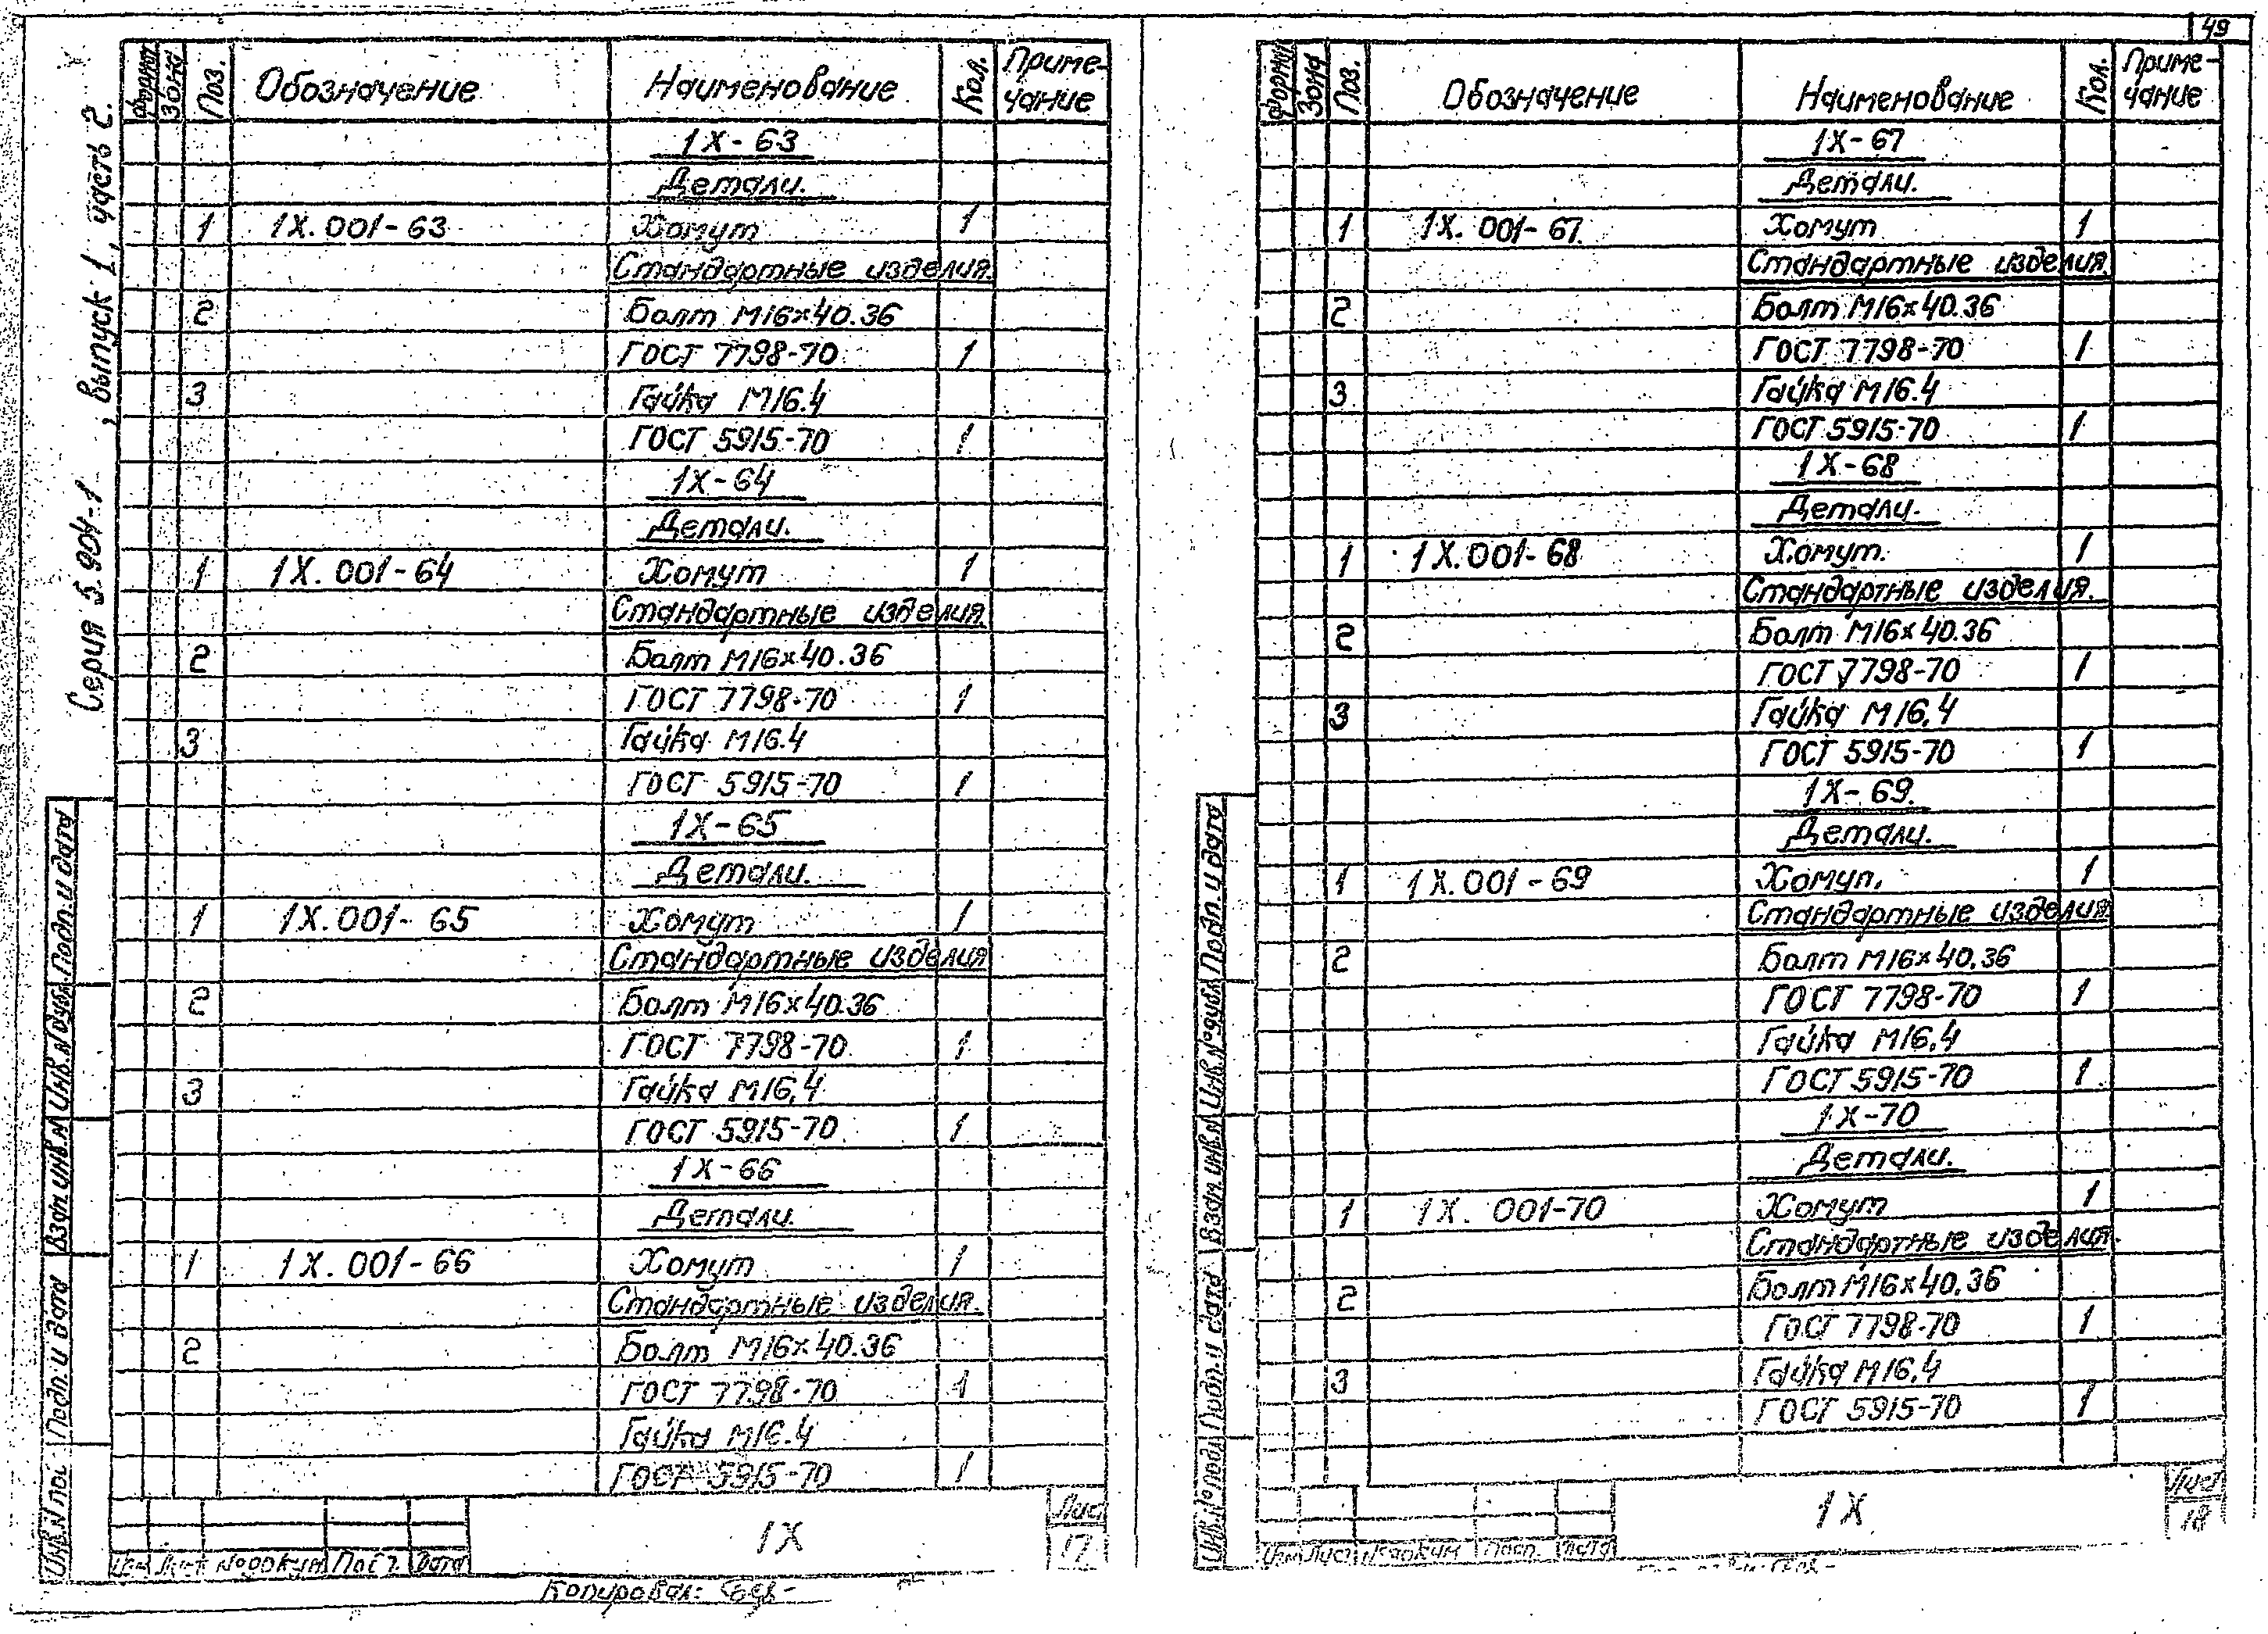 49
Серия 5.904-1 , выпуск 1, часть 2.
Формат Зона Поз. Обозначение Наименование Кол. Приме-
чание
1Х-63
Детали.
1 1Х.001-63 Хомут 1
Стандартные изделия.
2 Болт М16х40.36
ГОСТ 7798-70 1
3 Гайка М16.4
ГОСТ 5915-70 1
1Х-64
Детали.
1 1Х.001-64 Хомут 1
Стандартные изделия.
2 Болт М16х40.36
ГОСТ 7798-70 1
3 Гайка М16.4
ГОСТ 5915-70 1
1Х-65
Детали.
1 1Х.001-65 Хомут 1
Стандартные изделия
2 Болт М16х40.36
ГОСТ 7798-70 1
3 Гайка М16,4
ГОСТ 5915-70 1
1Х-66
Детали.
1 1Х.001-66 Хомут 1
Стандартные изделия.
2 Болт М16х40.36
ГОСТ 7798-70 1
Гайка М16.4
ГОСТ 5915-70 1
Подп. и дата
Инв.N дубл.
Взам.инв.N
Подп. и дата
Изм Лист №докум Дата
1Х
Лис
17
Копировал:
Форма Зона Поз. Обозначение Наименование Кол. Приме-
чание
1Х-67
Детали.
1 1Х.001-67. Хомут 1
Стандартные изделия.
2 Болт М16х40.36
ГОСТ 7798-70 1
3 Гайка М16.4
ГОСТ 5915-70 1
1Х-68
Детали.
1 1Х.001-68 Хомут. 1
Стандартные изделия.
2 Болт М16х40.36
ГОСТ 7798-70 1
3 Гайка М16,4
ГОСТ 5915-70 1
1Х-69.
Детали.
1 1Х.001-69 Хомуп. 1
Стандартные изделия
2 Болт М16х40,36
ГОСТ 7798-70 1
Гайка М16,4
ГОСТ 5915-70 1
1Х-70
Детали.
1 1Х. 001-70 Хомут 1
Стандартные изделия.
2 Болт М16х40,36
ГОСТ 7798-70 1
3 Гайка М16,4
ГОСТ 5915-70 1
Подп. и дата
Инв.N°дубл
Взам.инв.N
Подп. и дата
Инв.N°подл
Изм Лист №докум Подп. Дата
1Х
Лист
18